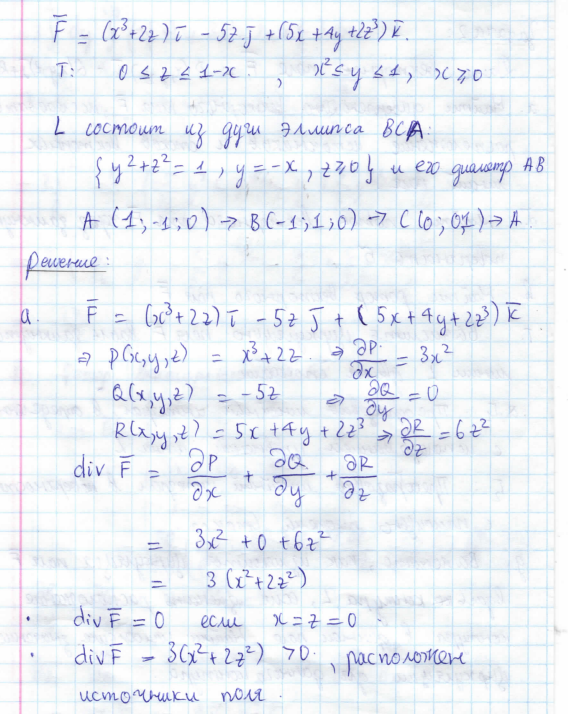 F̅ = (x³+2z) i̅ − 5z j̅ + (5x+4y+2z³) k̅.
T: 0 ≤ z ≤ 1−x , x² ≤ y ≤ 1, x ≥ 0
L состоит из дуги эллипса BCA:
{ y²+z²=1, y=−x, z≥0 } и его диаметр AB
A (1;−1;0) → B(−1;1;0) → C (0; 0,1) → A
Решение:
a. F̅ = (x³+2z) i̅ − 5z j̅ + (5x+4y+2z³) k̅
⇒ P(x,y,z) = x³+2z. ⇒ ∂P/∂x = 3x²
Q(x,y,z) = −5z ⇒ ∂Q/∂y = 0
R(x,y,z) = 5x+4y+2z³ ⇒ ∂R/∂z = 6z²
div F̅ = ∂P/∂x + ∂Q/∂y + ∂R/∂z
= 3x² + 0 + 6z²
= 3 (x²+2z²)
· div F̅ = 0 если x = z = 0.
· div F̅ = 3(x²+2z²) > 0. , расположен
источники поля.